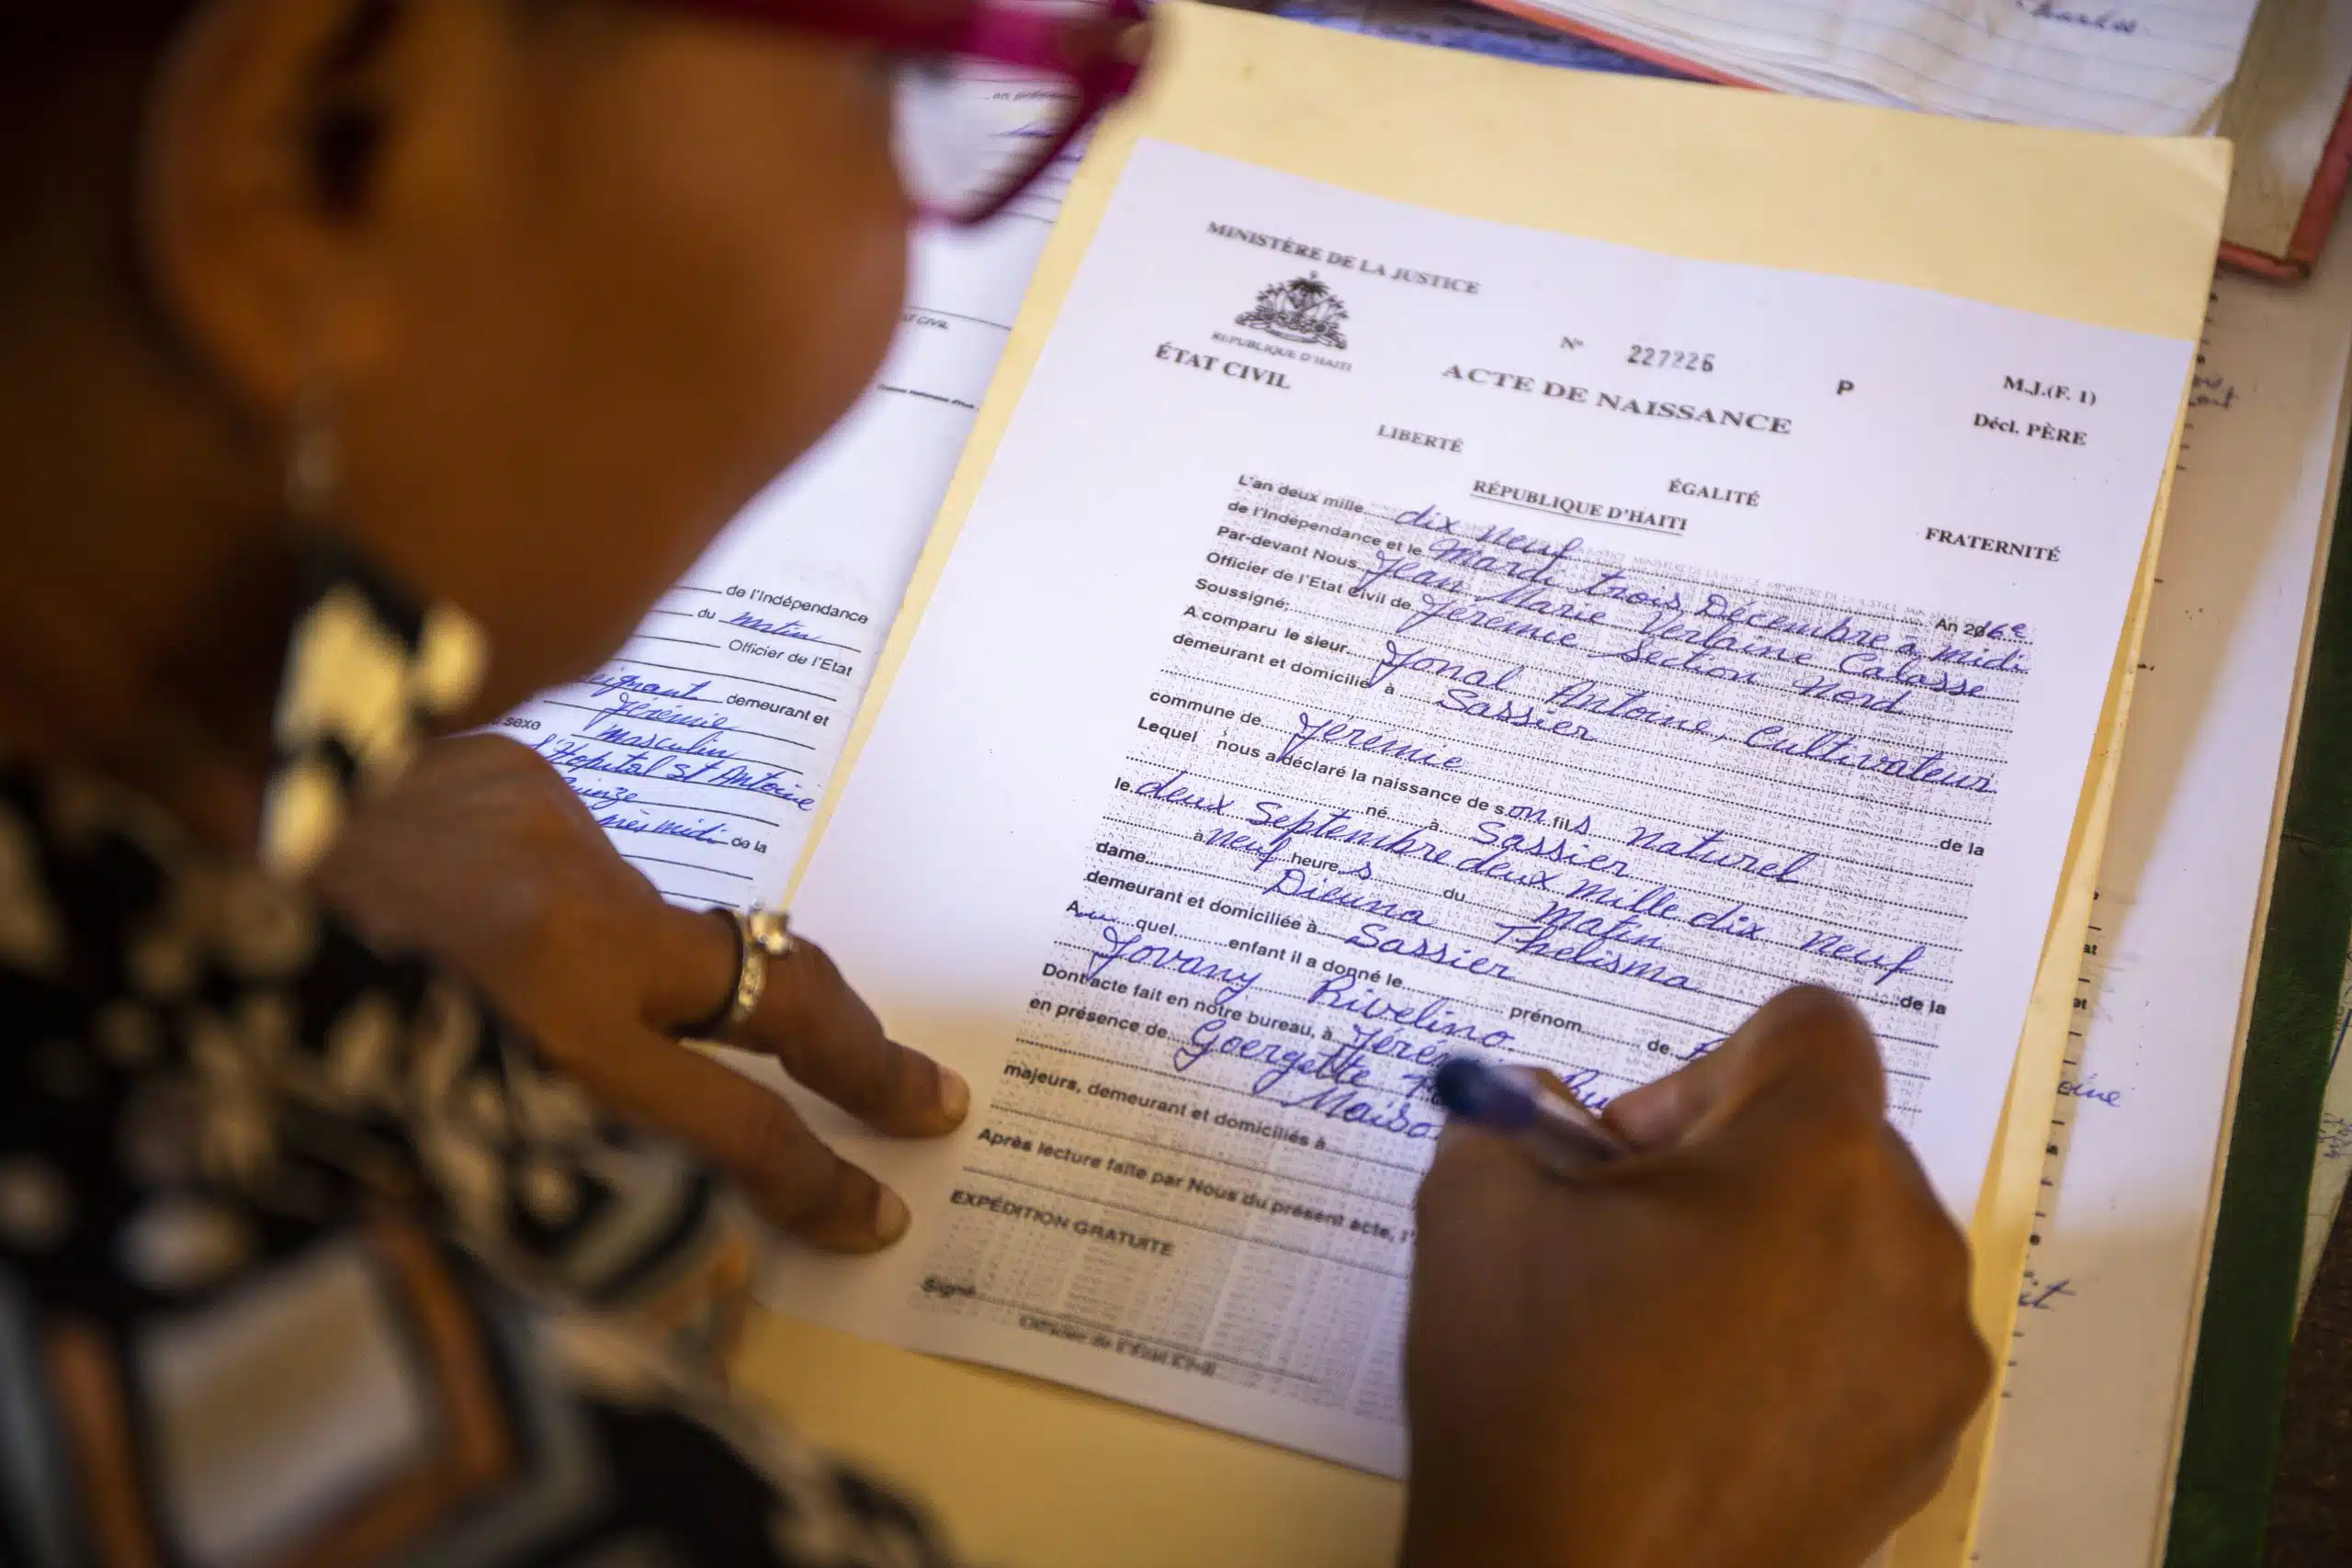 MINISTÈRE DE LA JUSTICE
REPUBLIQUE D'HAITI
ÉTAT CIVIL
N° 227226
P
M.J.(F. 1)
ACTE DE NAISSANCE
Décl. PÈRE
LIBERTÉ
ÉGALITÉ
FRATERNITÉ
RÉPUBLIQUE D'HAITI
L'an deux mille dix neuf An 216e
de l'Indépendance et le Mardi trois Décembre a midi
Par-devant Nous Jean Marie Verlaine Calasse
Officier de l'Etat Civil de Jeremie Section Nord
Soussigné:
A comparu le sieur Jonal Antoine, Cultivateur
demeurant et domicilié à Sassier
commune de Jeremie
Lequel nous a déclaré la naissance de son fils Naturel
né à Sassier de la
le deux Septembre deux mille dix neuf
à neuf heures du Matin
dame Dieuna Thelisma de la
demeurant et domiciliée à Sassier
Au quel enfant il a donné le prénom de
Jovany Rivelino
Dont acte fait en notre bureau, à
en présence de Goergette
majeurs, demeurant et domiciliés à
Après lecture faite par Nous du présent acte,
EXPÉDITION GRATUITE
Signé
Officier de l'Etat Civil
de l'Indépendance
du matin
Officier de l'Etat
demeurant et
Jérémie
sexe masculin
l'Hopital St Antoine
midi de la